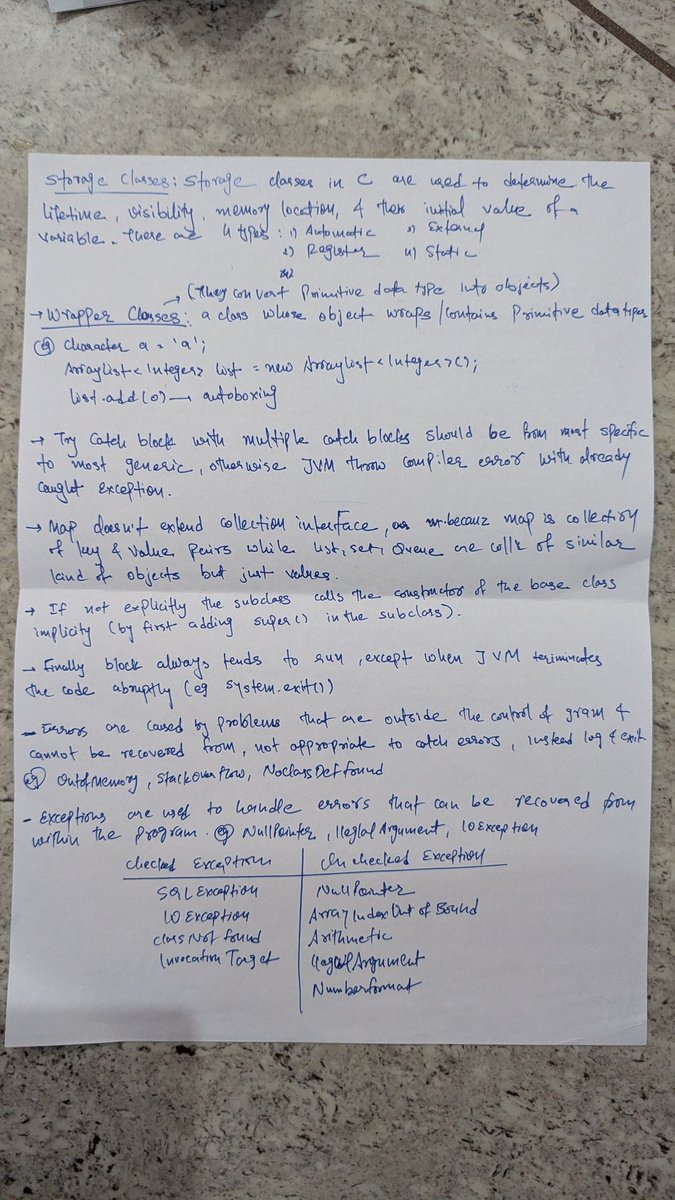 Storage Classes: Storage classes in C are used to determine the
lifetime, visibility, memory location, & their initial value of a
variable. There are 4 types: 1) Automatic 3) External
2) Register 4) Static
(They convert Primitive data type into objects)
→ Wrapper Classes: a class whose object wraps/contains Primitive data types
eg Character a = 'a';
ArrayList<Integer> list = new ArrayList<Integer>();
list.add(0) → autoboxing
→ Try Catch block with multiple catch blocks should be from most specific
to most generic, otherwise JVM throw compiler error with already
caught exception.
→ Map doesn't extend collection interface, becauz map is collection
of key & value pairs while list, set, Queue are colln of similar
kind of objects but just values.
→ If not explicitly the subclass calls the constructor of the base class
implicity (by first adding super() in the subclass).
→ Finally block always tends to run, except when JVM teriminates
the code abruptly (eg System.exit())
- Errors are caused by problems that are outside the control of gram &
cannot be recovered from, not appropriate to catch errors, instead log & exit
eg OutofMemory, StackOverflow, NoclassDeffound
- Exceptions are used to handle errors that can be recovered from
within the program. eg NullPointer, IleglalArgument, IOException
Checked Exceptions Unchecked Exception
SQLException NullPointer
IOException ArrayIndexOut of Bound
Class Not found Arithmetic
Invocation Target IleglalArgument
Numberformat